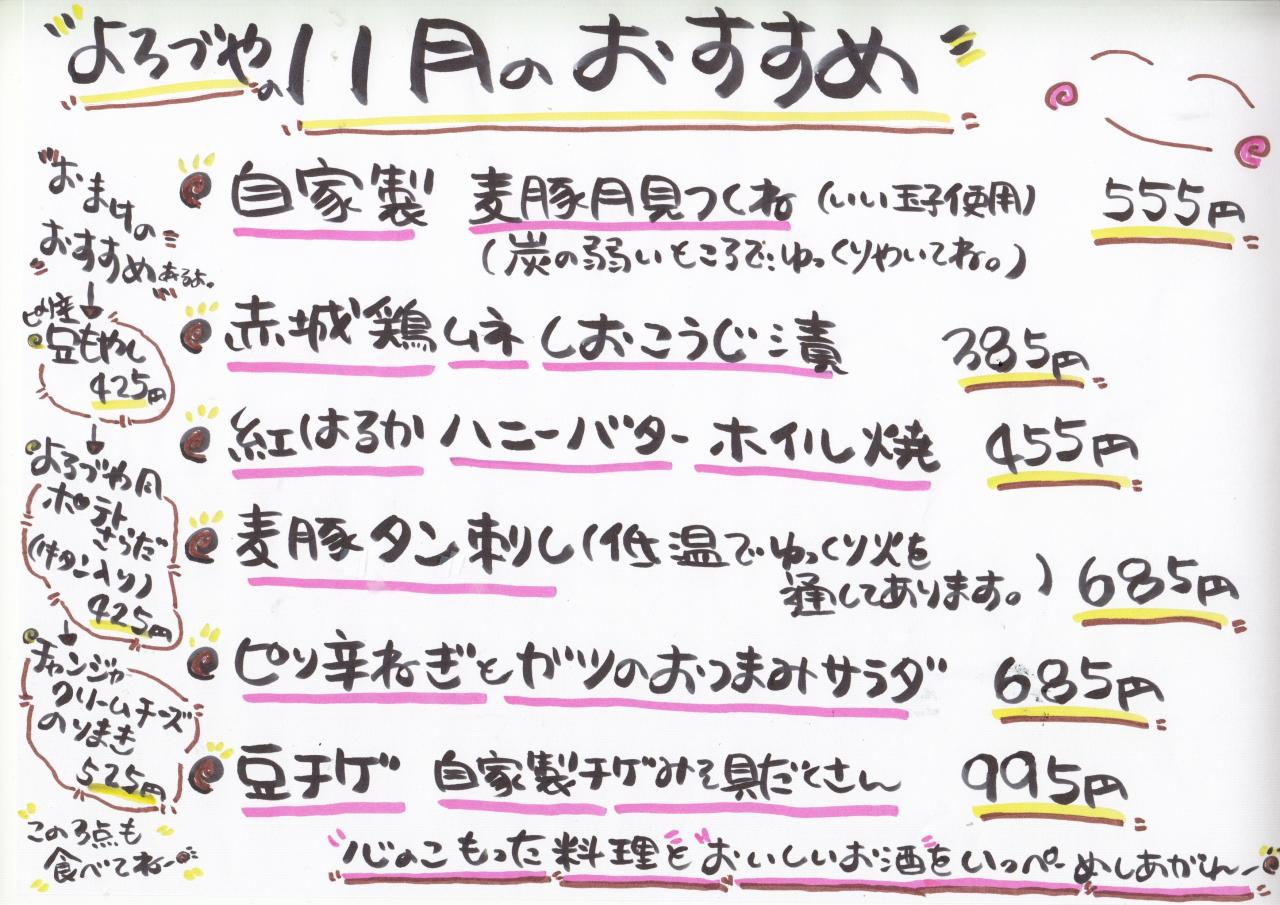 よろづやの11月のおすすめ
自家製 麦豚月見つくね (いい玉子使用) 555円
(炭の弱いところでゆっくりやいてね。)
赤城鶏ムネしおこうじ漬 385円
紅はるか ハニーバター ホイル焼 455円
麦豚タン刺し(低温でゆっくり火を
通してあります。) 685円
ピリ辛ねぎとガツのおつまみサラダ 685円
豆チゲ 自家製チゲみそ具だくさん 995円
心のこもった料理とおいしいお酒をいっぺーめしあがれー
おまけの
おすすめあるよ。
ピリ辛
豆もやし
425円
よろづや月
ポテト
さらだ
(牛タン入り)
425円
チャンジャー
クリームチーズ
のりまき
525円
この3点も
食べてねー